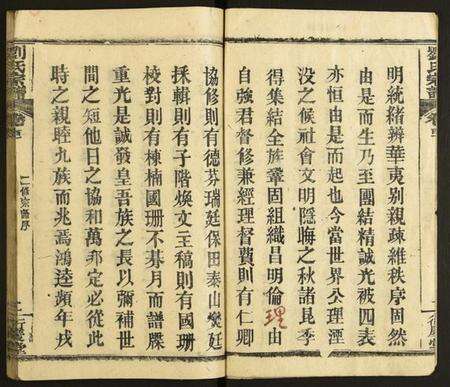 劉氏宗譜
明統緒辨華夷別親疎維秩序固然
由是而生乃至團結精誠光被四表
亦恒由是而起也今當世界公理湮
没之候社會文明隱晦之秋諸昆季
得集結全族鞏固組織昌明倫理由
自強君督修兼經理督費則有仁卿
協修則有德芬瑞廷保田泰山燮廷
採輯則有子階煥文主稿則有國珊
校對則有棟楠國珊不朞月而譜牒
重光是誠發皇吾族之長以彌補世
間之短他日之協和萬邦定必從此
時之親睦九族而兆焉鴻逵蘋年戌
劉氏宗譜
二修宗譜序